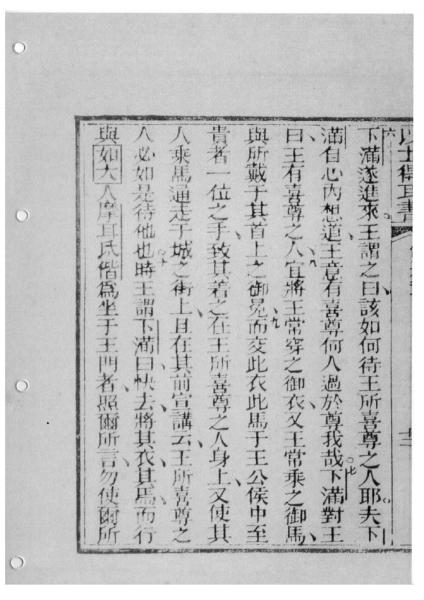 以士得耳書
十二
六
下滿遂進來王謂之曰該如何待王所喜尊之人耶夫下
滿自心內想道王意有喜尊何人過於尊我哉下滿對王
七
曰王有喜尊之人宜將王常穿之御衣又王常乘之御馬
八
與所戴于其首上之御冕而交此衣此馬于王公侯中至
九
貴者一位之手致其著之在王所喜尊之人身上又使其
人乘馬通走于城之街上且在其前宣講云王所喜尊之
人必如是待他也時王謂下滿曰快去將其衣其馬而行
十
與如大人摩耳氐偕為坐于王門者照爾所言勿使爾所